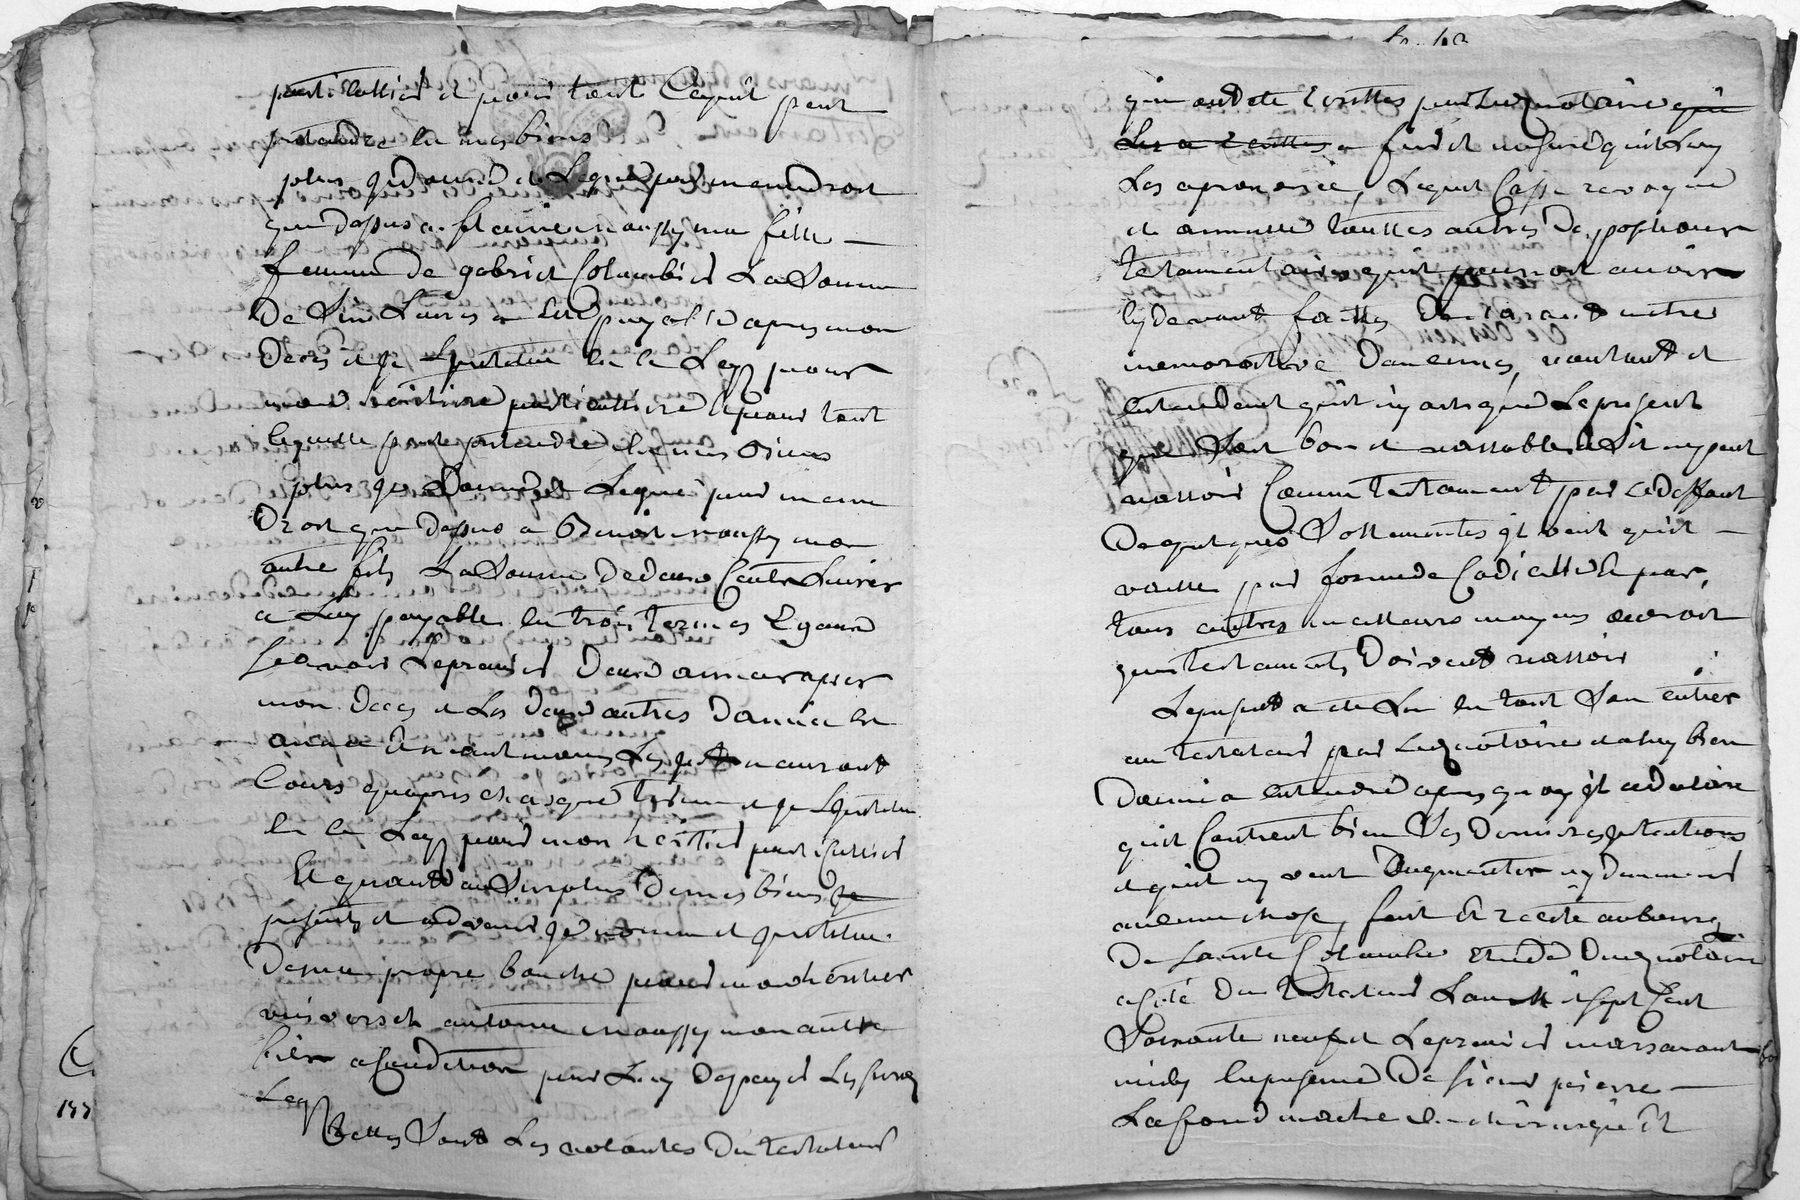 particullier et pour tout ce quil peut
pretendre en mes biens
plus je donne et legue par meme droit
que dessus a fleurie maussy ma fille
femme de gabriel Colombier la somme
de six livres a elle payable apres mon
deces et je linstitue en ce leg pour
mon heritiere particulliere et pour tout
ce quelle peut pretendre en mes biens
plus je donne et legue par meme
droit que dessus a Benoit maussy mon
autre fils la somme de deux cents livres
a luy payable en trois termes egaux
scavoir le premier deux annees apres
mon deces et les deux autres dannee en
annee neantmoins les nauront
cours quapres chasque terme et je linstitue
en ce leg pour mon heritier particullier
Et quant au surplus de mes biens
presents et advenir je nomme et institue
de ma propre bouche pour mon heritier
universel antoine maussy mon autre
fils a condition par luy de payer les susd
leg
telles sont les volontes du testateur
qui ont ete ecrittes par led notaire que
les a ecrittes a fur et mesure quil luy
les a prononcé, lequel casse revoque
et annulle touttes autres dispositions
testamentaires quil pourroit avoir
cy devant faittes declarant netre
memoratif daucunes, voulant et
entendant quil ny ait que le present
qui soit bon et vallable et sil ne peut
valloir comme testament par le deffaut
de quelques sollemnites il veut quil
vaille par forme de codicille et par
tous autres meilleurs moyens de droit
que testaments doivent valloir
Le present a ete lu en tout son entier
au testateur par led notaire et a luy bien
donné a entendre apres quoy il a declaré
quil contient bien ses dernieres intentions
et quil ny veut augmenter ny diminuer
aucune chose, fait et recité au bourg
de Sainte Colombe etude dud notaire
a coté du testateur lan mil sept cent
soixante neuf et le premier mars avant
midy en presence de sieur pierre
Lafond maitre en chirurgie et